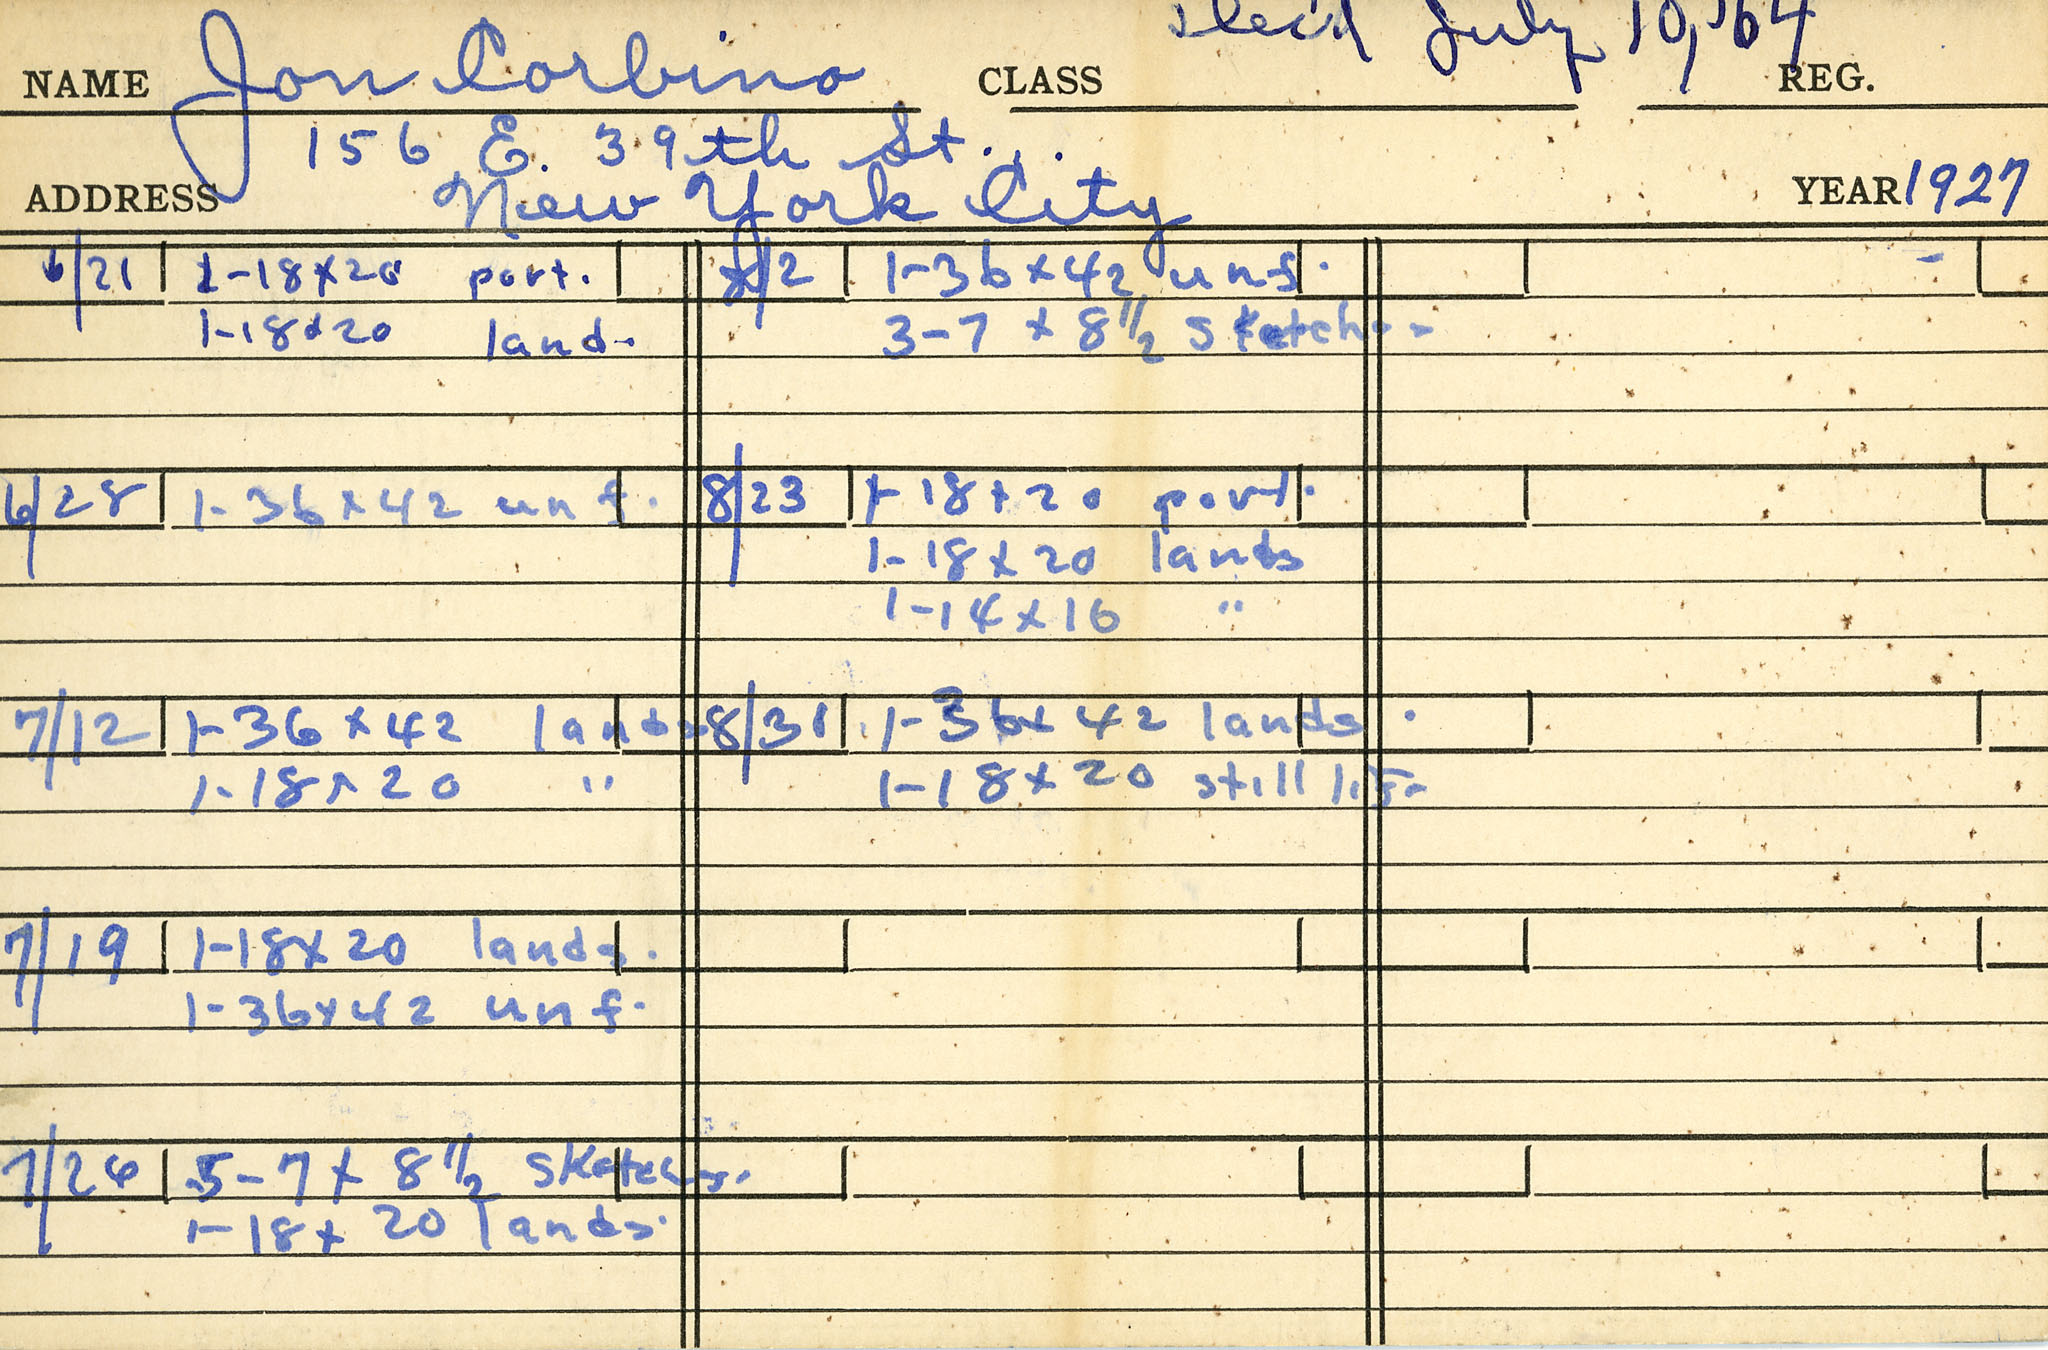 Dec'd July 10, '64
NAME Jon Corbino CLASS REG.
156 E. 39th St.
ADDRESS New York City YEAR 1927
6/21 1-18x20 port.
1-18x20 land.
6/28 1-36x42 unf.
7/12 1-36x42 lands
1-18x20 "
7/19 1-18x20 lands.
1-36x42 unf.
7/26 5-7x8 1/2 sketches.
1-18x20 lands.
8/2 1-36x42 unf.
3-7x8 1/2 sketches
8/23 1-18x20 port.
1-18x20 lands
1-14x16 "
8/31 1-36x42 lands.
1-18x20 still life